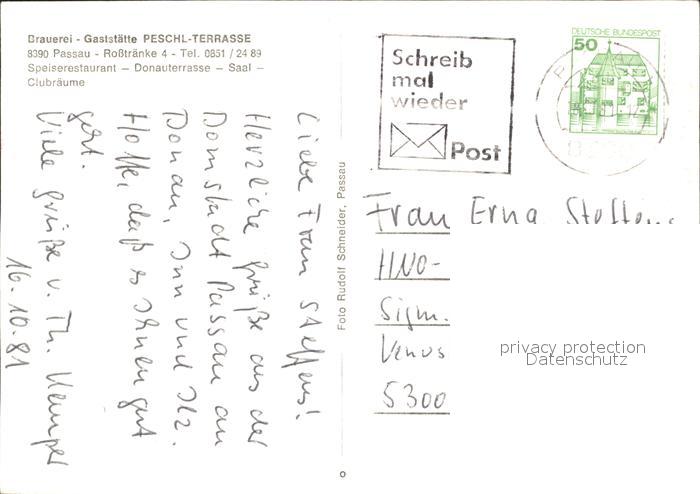 Brauerei - Gaststätte PESCHL-TERRASSE
8390 Passau - Roßtränke 4 - Tel. 0851 / 24 89
Speiserestaurant – Donauterrasse – Saal –
Clubräume
Liebe Frau Steffens!
Herzliche Grüße aus der
Domstadt Passau an
Donau, Inn und Ilz.
Hoffe, daß es Ihnen gut
geht.
Viele Grüße v. Th. Kemper
16.10.81
Foto Rudolf Schneider, Passau
Schreib
mal
wieder
Post
DEUTSCHE BUNDESPOST
50
Frau Erna
HNO-
Venus
5300
privacy protection
Datenschutz